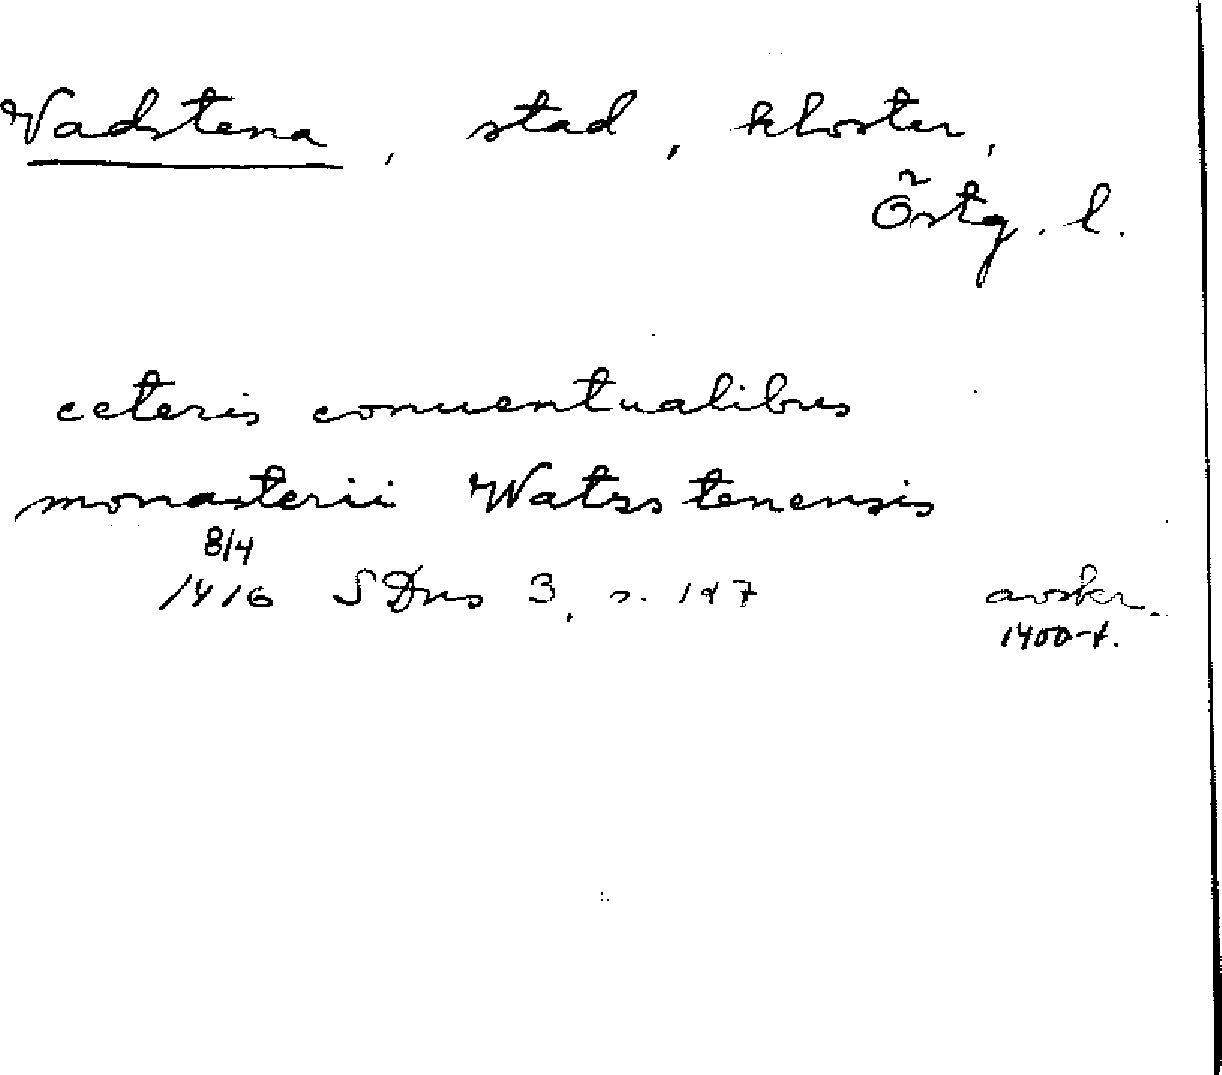 Vadstena, stad, kloster,
Östg. l.
ceteris conuentualibus
monasterii Watzstenensis
8/4
1416 SDns 3, s. 187 avskr.
1400-t.